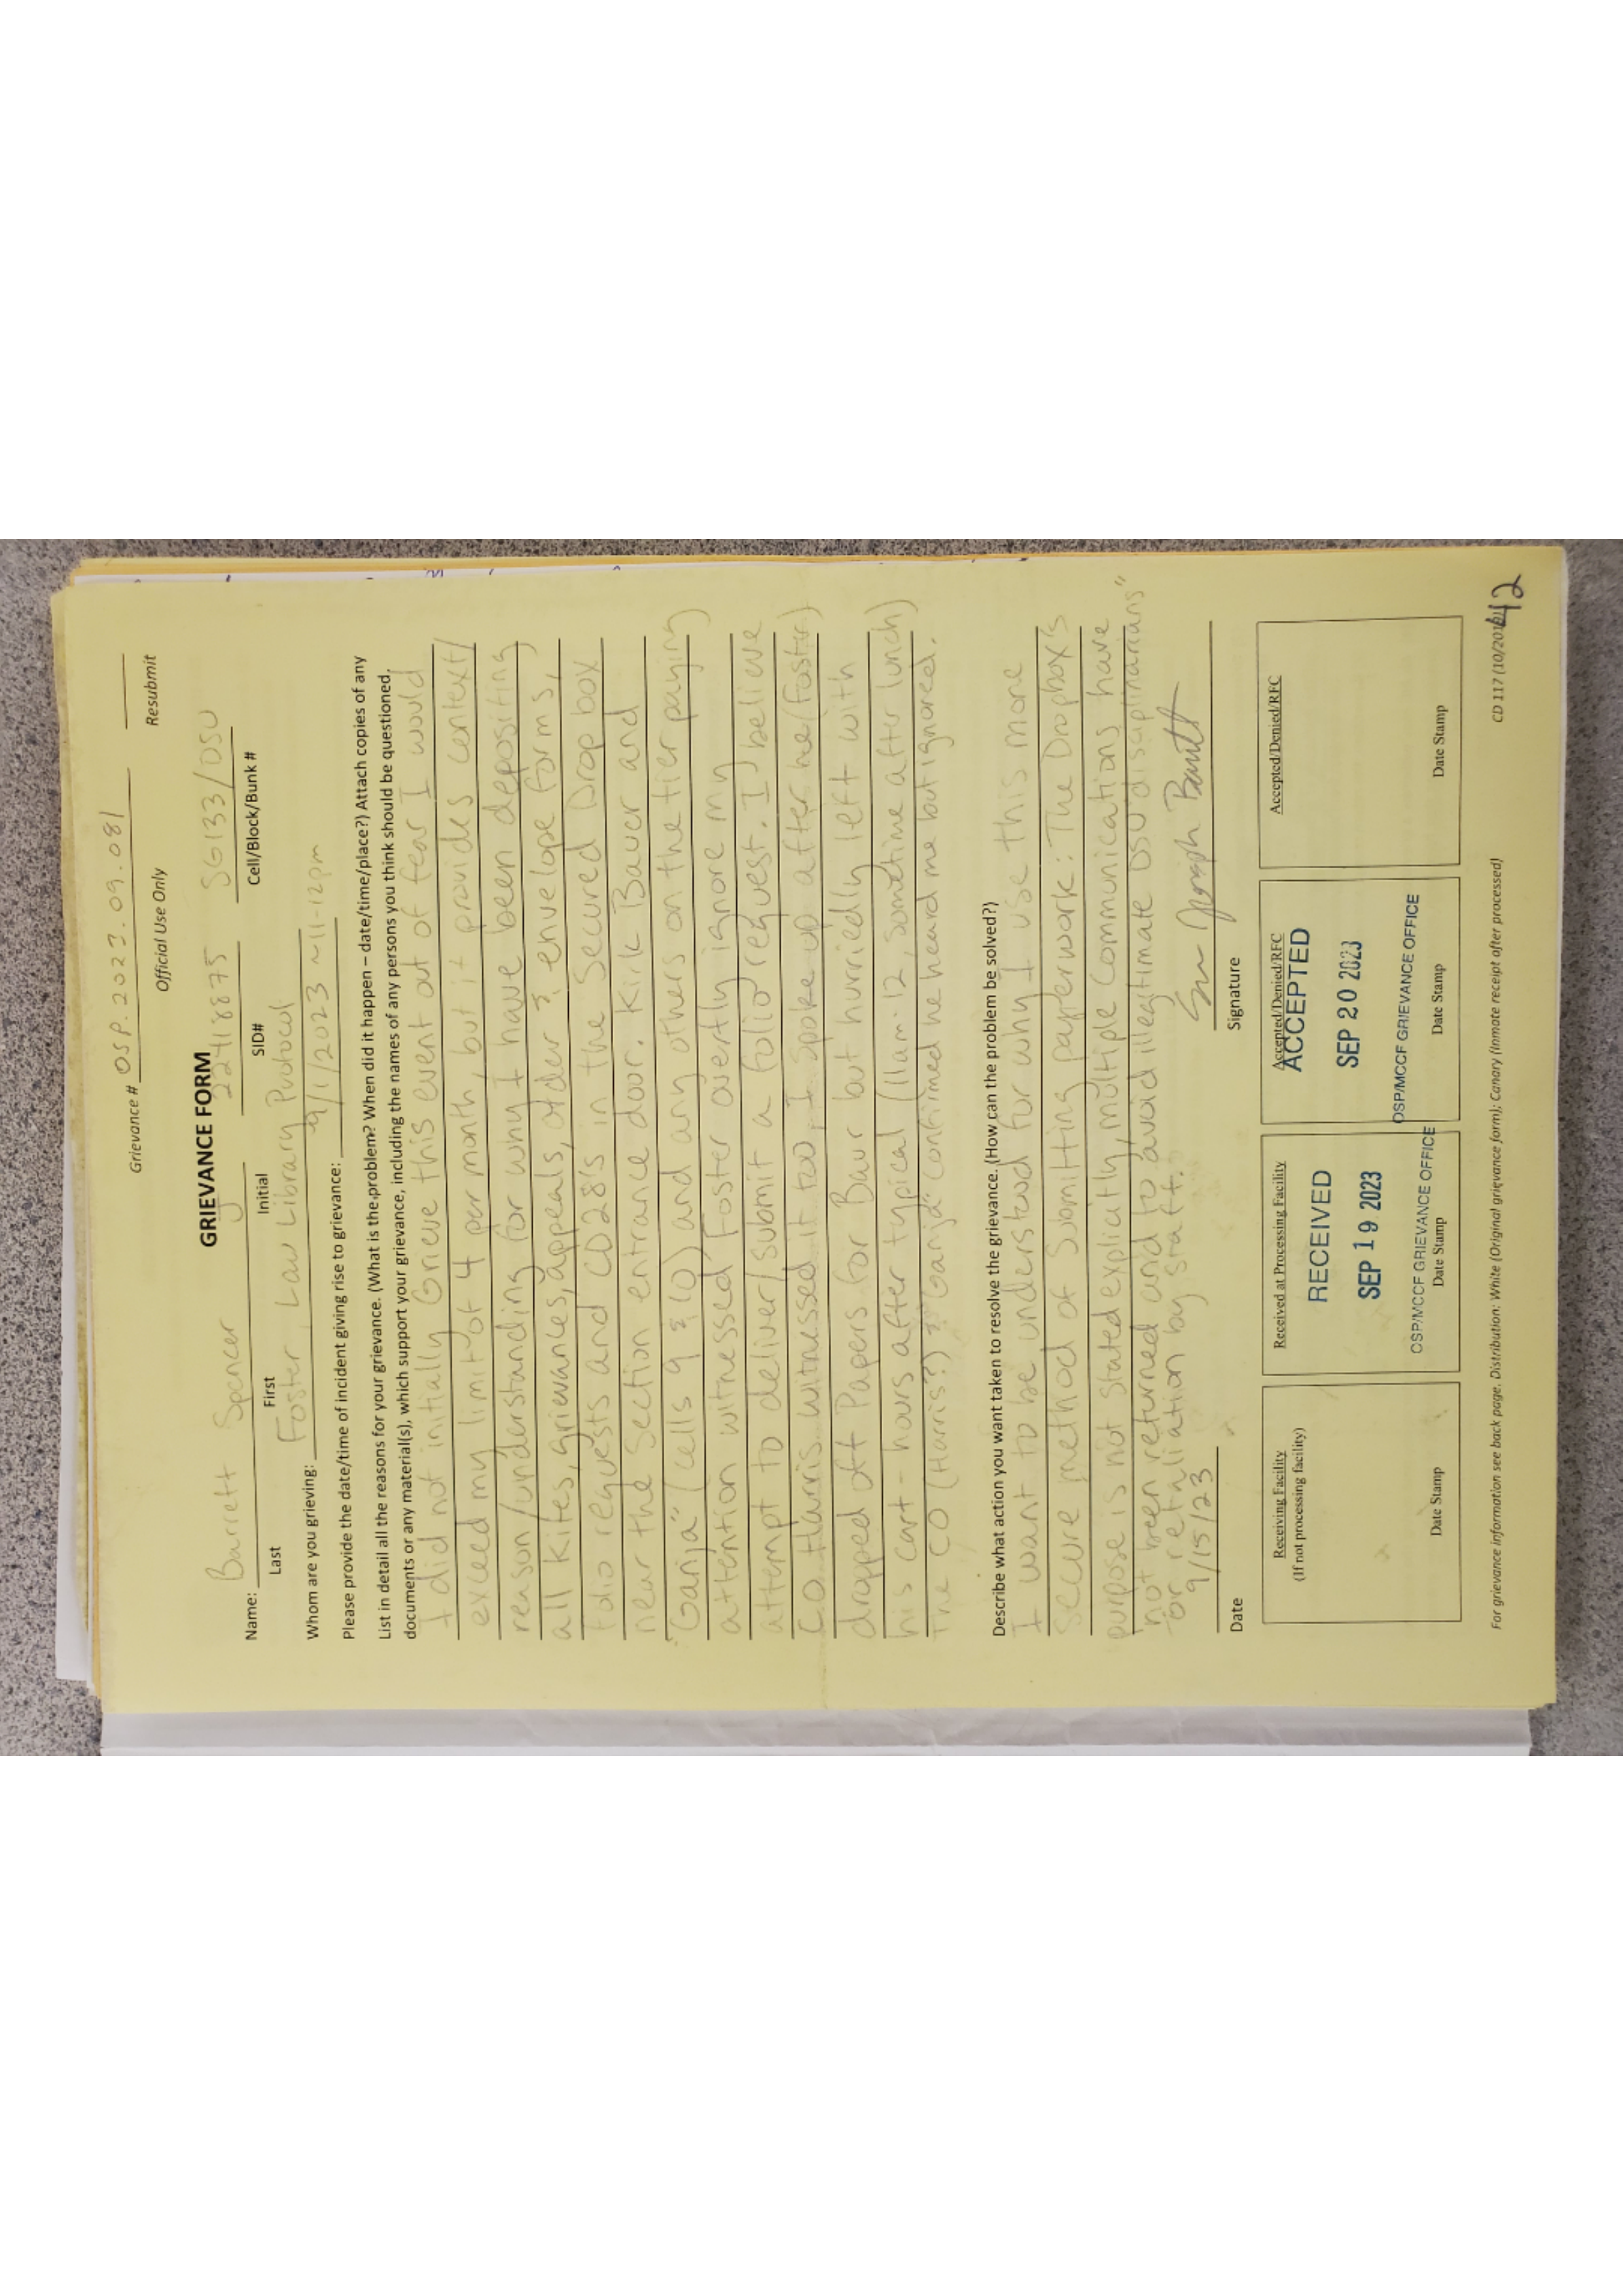 Grievance # OSP.2023.09.081
Official Use Only
Resubmit
GRIEVANCE FORM
Name: Barrett Spencer J 22418875 SG133/OSU
Last First Initial SID# Cell/Block/Bunk #
Whom are you grieving: Foster, Law Library Protocol
Please provide the date/time of incident giving rise to grievance: 9/1/2023 ~11-12pm
List in detail all the reasons for your grievance. (What is the problem? When did it happen – date/time/place?) Attach copies of any
documents or any material(s), which support your grievance, including the names of any persons you think should be questioned.
I did not initially Grieve this event out of fear I would
exceed my limit of 4 per month, but it provides context/
reason/understanding for why I have been depositing
all Kites, grievances, appeals, order & envelope forms,
folio requests and CD28's in the Secured Drop box
near the Section entrance door. Kirk Baver and
"Ganja" (cells 9 & 10) and any others on the tier paying
attention witnessed Foster overtly ignore my
attempt to deliver/submit a folio request. I believe
CO Harris witnessed it too, I spoke up after he (Foster)
dropped off Papers for Baur but hurriedly left with
his cart - hours after typical (11am-12, sometime after lunch)
The CO (Harris?) "Ganja" confirmed he heard me but ignored.
Describe what action you want taken to resolve the grievance. (How can the problem be solved?)
I want to be understood for why I use this more
secure method of submitting paperwork: The Dropbox's
purpose is not stated explicitly, multiple communications have
not been returned and to avoid illegitimate DSU "disciplinarians"
or retaliation by staff.
9/15/23
Date Signature
Receiving Facility
(If not processing facility)
Date Stamp
Received at Processing Facility
RECEIVED
SEP 19 2023
OSP/MCCF GRIEVANCE OFFICE
Date Stamp
Accepted/Denied/RFC
ACCEPTED
SEP 20 2023
OSP/MCCF GRIEVANCE OFFICE
Date Stamp
Accepted/Denied/RFC
Date Stamp
For grievance information see back page. Distribution: White (Original grievance form); Canary (Inmate receipt after processed)
CD 117 (10/2019)
42